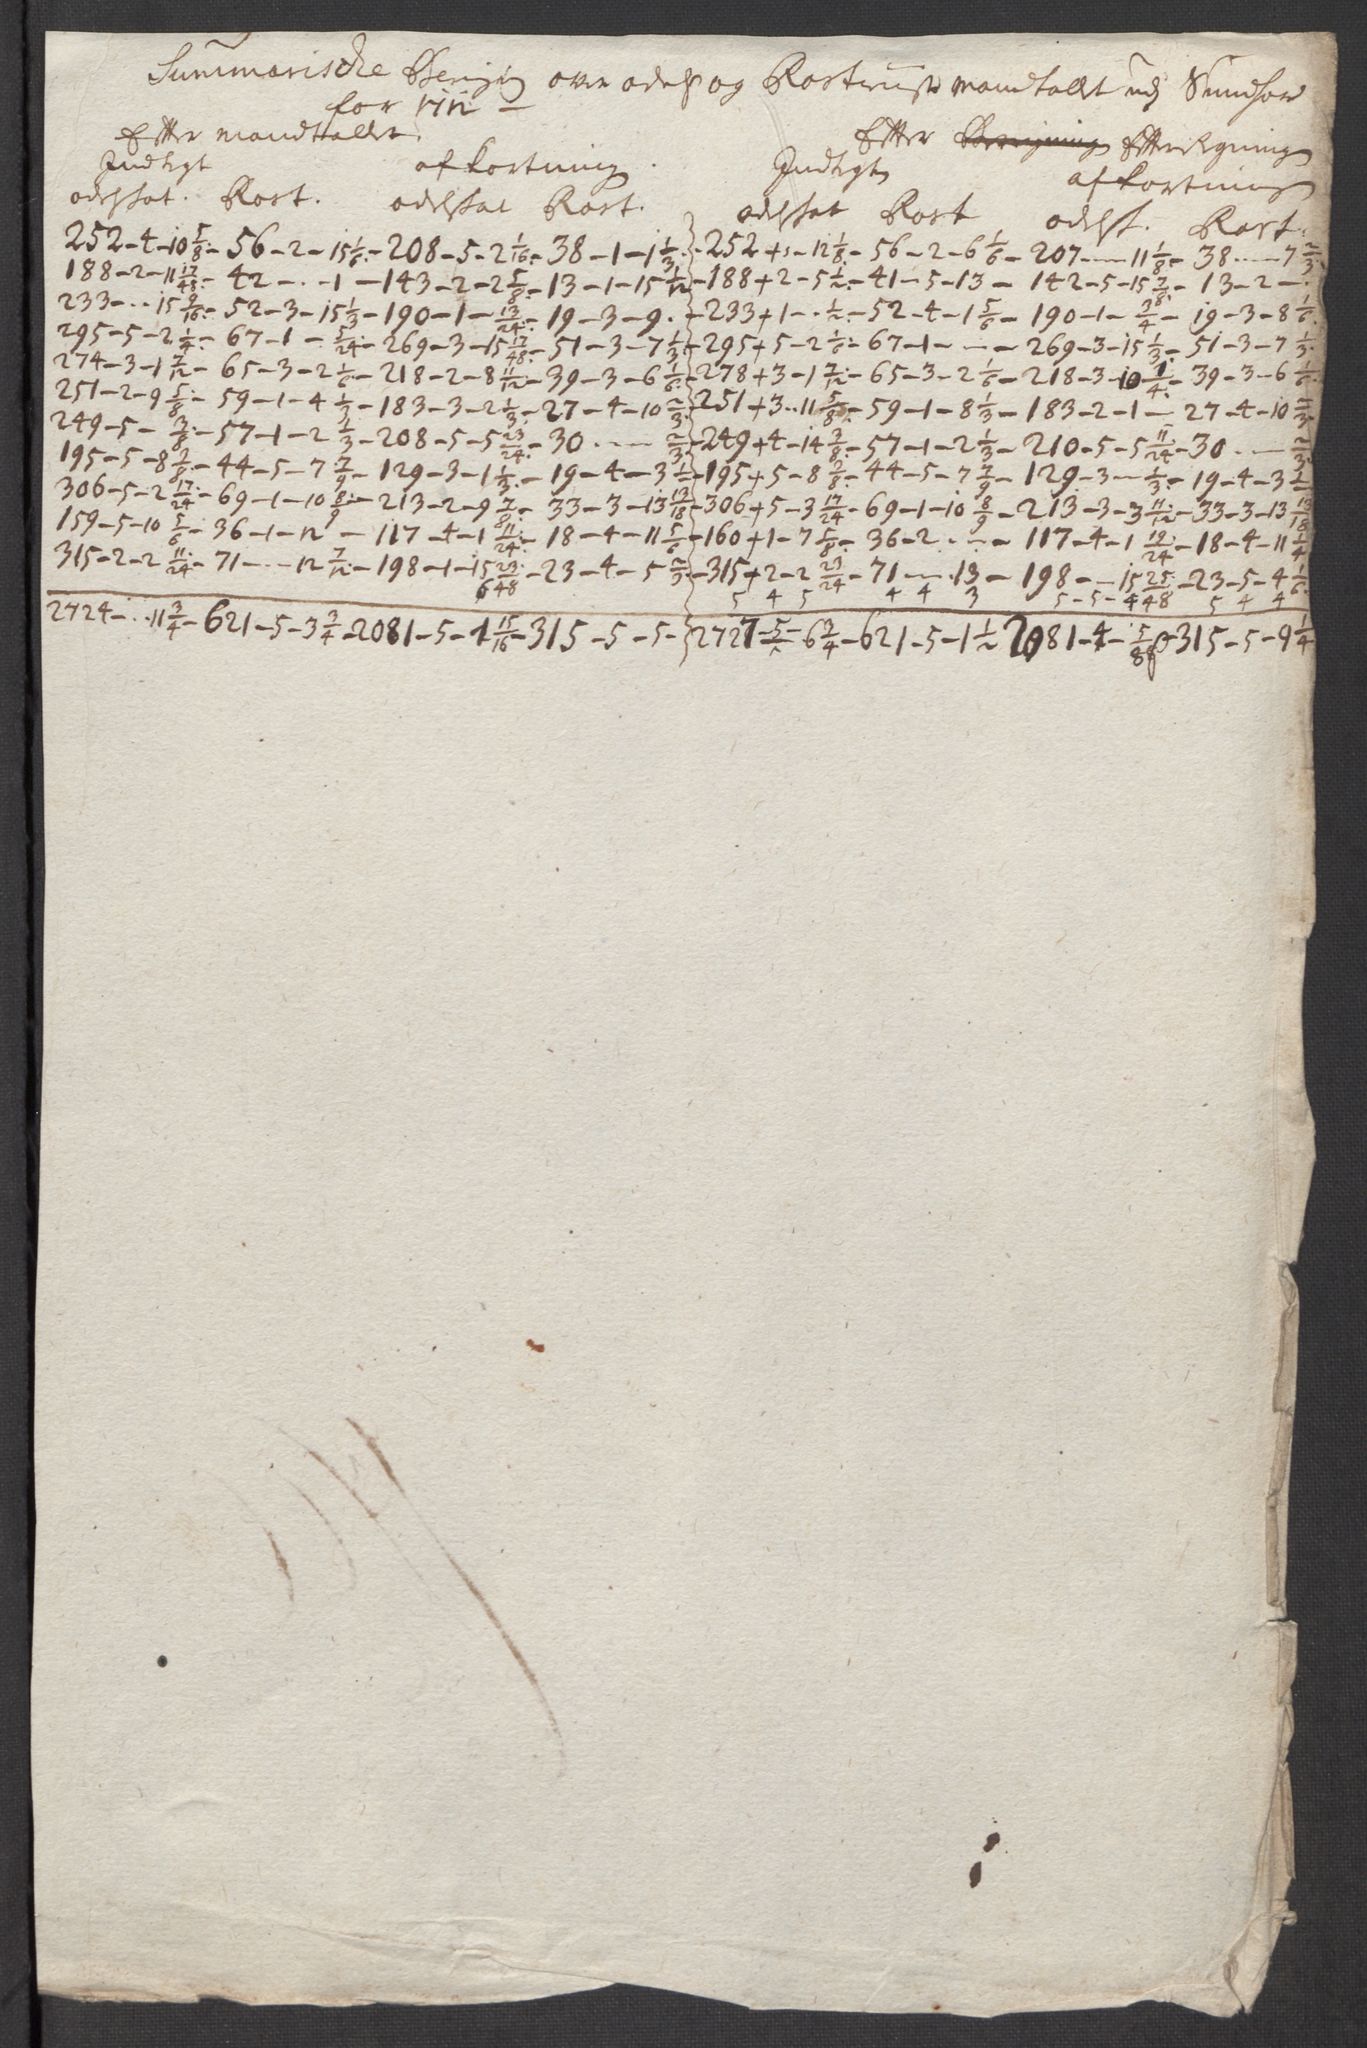 Summarische over odels og Rostieniste mandtallet udj Sundhor
for 1712
Effter mandtallet. Effter Efftereigning
Indtegt afkortning. Indtegt afkortning
odelskat. Rost. odelskat Rost. odelskat Rost odelsk. Rost.
252-4-10 5/8 - 56-2-15 1/6 - 208-5-2 1/16 - 38-1-1 1/3 - 252+5-12 1/8 - 56-2-6 1/6 - 207--11 1/8 - 38--7 2/3
188-2-11 17/48 - 42--1 - 143-2-2 5/8 - 13-1-15 1/12 - 188+2-5 1/2 - 41-5-13 - 142-5-15 7/8 - 13-2-
233--15 9/16 - 52-3-15 1/3 - 190-1- 13/24 - 19-3-9 - 233+1- 1/2 - 52-4-1 5/6 - 190-1- 3/4 - 19-3-8 1/6
295-5-2 1/4 - 67-1- 5/24 - 269-3-15 17/48 - 51-3-7 1/3 - 295+5-2 1/6 - 67-1- - 269-3-15 1/3 - 51-3-7 1/3
274-3-1 7/12 - 65-3-2 1/6 - 218-2-8 11/12 - 39-3-6 1/6 - 278+3-1 7/12 - 65-3-2 1/6 - 218-3-10 1/4 - 39-3-6 1/6
251-2-9 5/8 - 59-1-4 1/3 - 183-3-2 1/3 - 27-4-10 2/3 - 251+3-11 5/8 - 59-1-8 1/3 - 183-2-1 - 27-4-10 2/3
249-5- 3/8 - 57-1-2 1/3 - 208-5-5 23/24 - 30-- 2/3 - 249+4-14 3/8 - 57-1-2 1/3 - 210-5-5 11/24 - 30-- 2/3
195-5-8 7/8 - 44-5-7 7/9 - 129-3-1 1/3 - 19-4-3 1/2 - 195+5-8 7/8 - 44-5-7 7/9 - 129-3- 1/3 - 19-4-3 1/2
306-5-2 17/24 - 69-1-10 8/9 - 213-2-9 7/8 - 33-3-13 13/18 - 306+5-3 17/24 - 69-1-10 8/9 - 213-3-3 11/12 - 33-3-13 13/18
159-5-10 5/6 - 36-1-12 - 117-4-1 11/24 - 18-4-11 5/6 - 160+1-7 5/8 - 36-2- - 117-4-1 19/24 - 18-4-11 1/4
315-2-2 11/24 - 71--12 7/12 - 198-1-15 23/48 - 23-4-5 2/3 - 315+2-2 23/24 - 71--13 - 198--15 25/48 - 23-5-4 1/6
6 5 4 5 4 4 3 5-5-4 5 4 4
2724--11 3/4 - 621-5-3 3/4 - 2081-5-1 15/16 - 315-5-5 - 2727-5-6 3/4 - 621-5-1 1/2 2081-4- 5/8 - 315-5-9 1/4